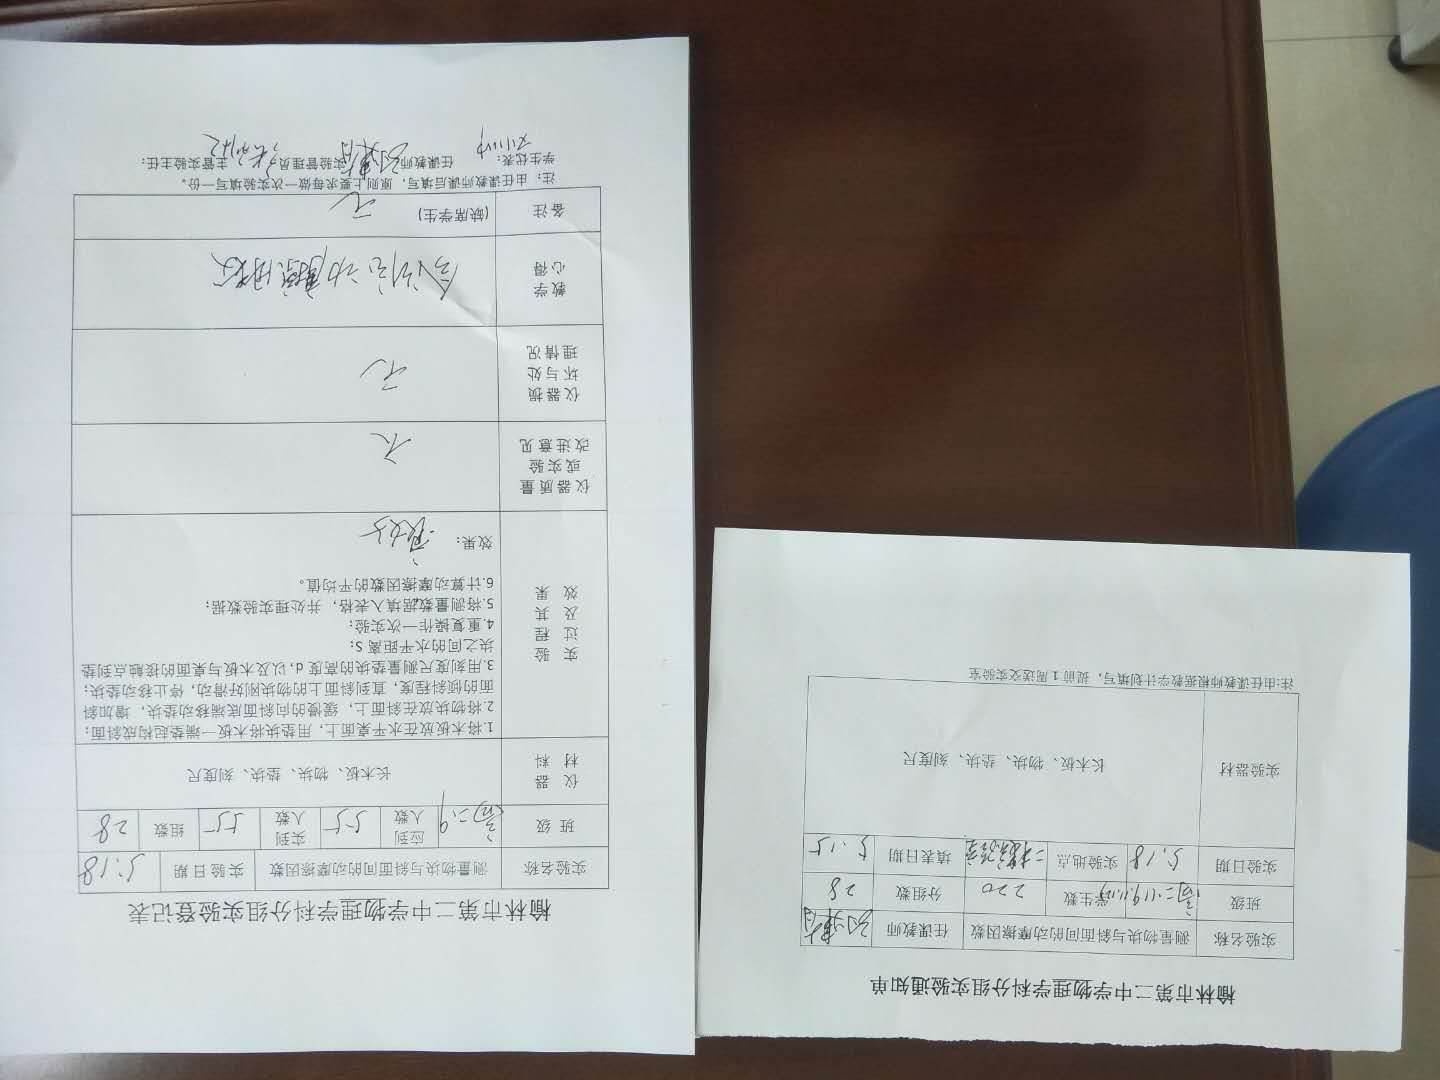 榆林市第二中学物理学科分组实验登记表
实验名称 测量物块与斜面间的动摩擦因数 实验日期 5.18
班级 高二.9 应到人数 55 实到人数 55 组数 28
仪器材料 长木板、物块、垫块、刻度尺
实验过程及其效果
1.将木板放在水平桌面上，用垫块将木板一端垫起构成斜面；
2.将物块放在斜面上，缓慢的向斜面底端移动垫块，增加斜
面的倾斜程度，直到斜面上的物块刚好滑动，停止移动垫块；
3.用刻度尺测量垫块的高度 d，以及木板与桌面的接触点到垫
块之间的水平距离 S；
4.重复操作一次实验；
5.将测量数据填入表格，并处理实验数据；
6.计算动摩擦因数的平均值。
效果：很好
仪器质量或实验改进意见 无
仪器损坏与处理情况 无
教学心得 会测定动摩擦因数
备注 (缺席学生) 无
注：由任课教师课后填写，原则上要求每做一次实验填写一份。
学生代表： 任课教师 实验管理员： 主管实验主任：
榆林市第二中学物理学科分组实验通知单
实验名称 测量物块与斜面间的动摩擦因数 任课教师
班级 学生数 220 分组数 28
实验日期 5.18 实验地点 填表日期 5.15
实验器材 长木板、物块、垫块、刻度尺
注:由任课教师根据教学计划填写，提前 1 周送交实验室